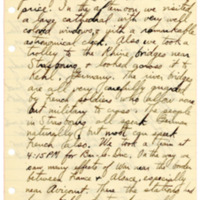 prise. In the afternoon we visited
a large cathedral with very well
colored windows, & with a remarkable
astronomical clock. Also we took a
trolley to the Rhine, bridge, near
Strasbourg, & looked across it to
Kehl, Germany. The river bridges
are all very carefully guarded
by French soldiers who allow none
but military to cross. The people
in Strasbourg all speak German
naturally, but most can speak
French also. We took a train at
4:15 PM for Bar-le-Duc. On the way we
saw many effects of war near the border
between France & Alsace, especially
near Avricourt. There the stations had